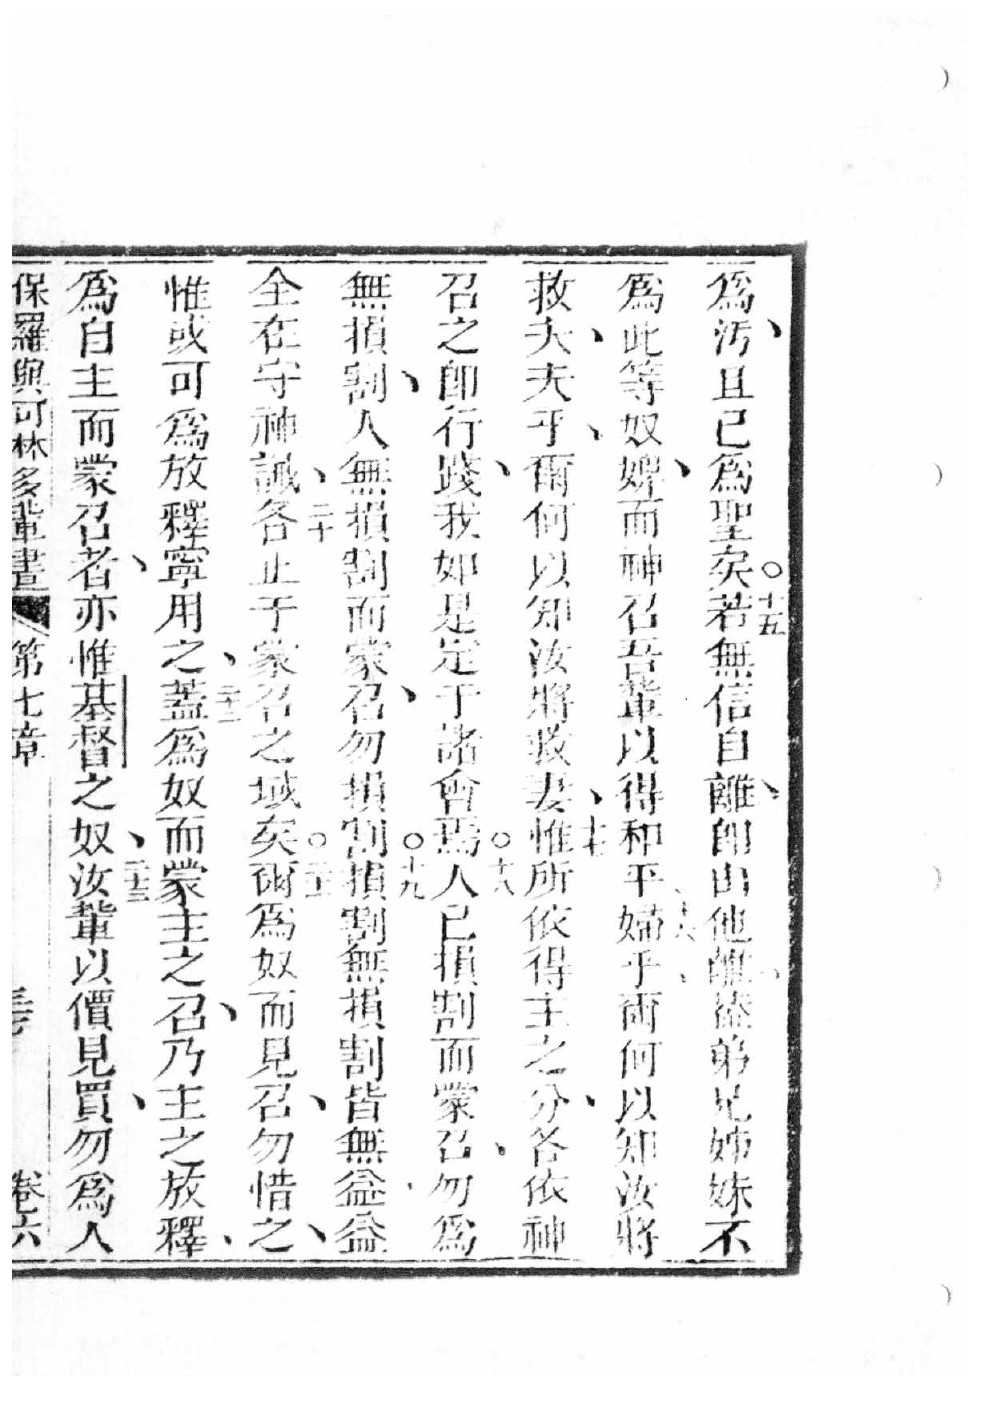 爲汚且已爲聖矣○十五若無信自離卽由他離蓋弟兄姊妹不
爲此等奴婢而神召吾輩以得和平十六婦乎爾何以知汝將
救夫夫乎爾何以知汝將救妻十七惟所依得主之分各依神
召之卽行踐我如是定于諸會焉○十八人已損割而蒙召勿爲
無損割人無損割而蒙召勿損割○十九損割無損割皆無益益
全在守神誡二十各止于蒙召之域矣○二十一爾爲奴而見召勿惜之
惟或可爲放釋寧用之二十二蓋爲奴而蒙主之召乃主之放釋
爲自主而蒙召者亦惟基督之奴二十三汝輩以價見買勿爲人
保羅與可林多輩書 第七章 卷六